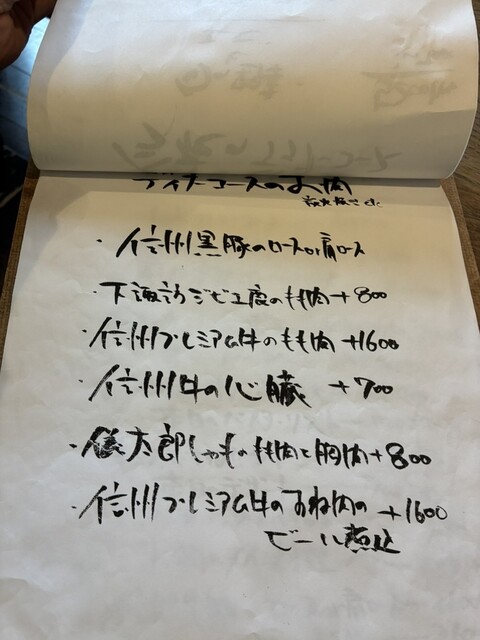 ディナーコースのお肉
・信州黒豚のロースか肩ロース
・下諏訪ジビエ鹿のもも肉 +800
・信州プレミアム牛のもも肉 +1600
・信州牛の心臓 +700
・儀太郎しゃものもも肉と胸肉 +800
・信州プレミアム牛のすね肉の +1600
ビール煮込